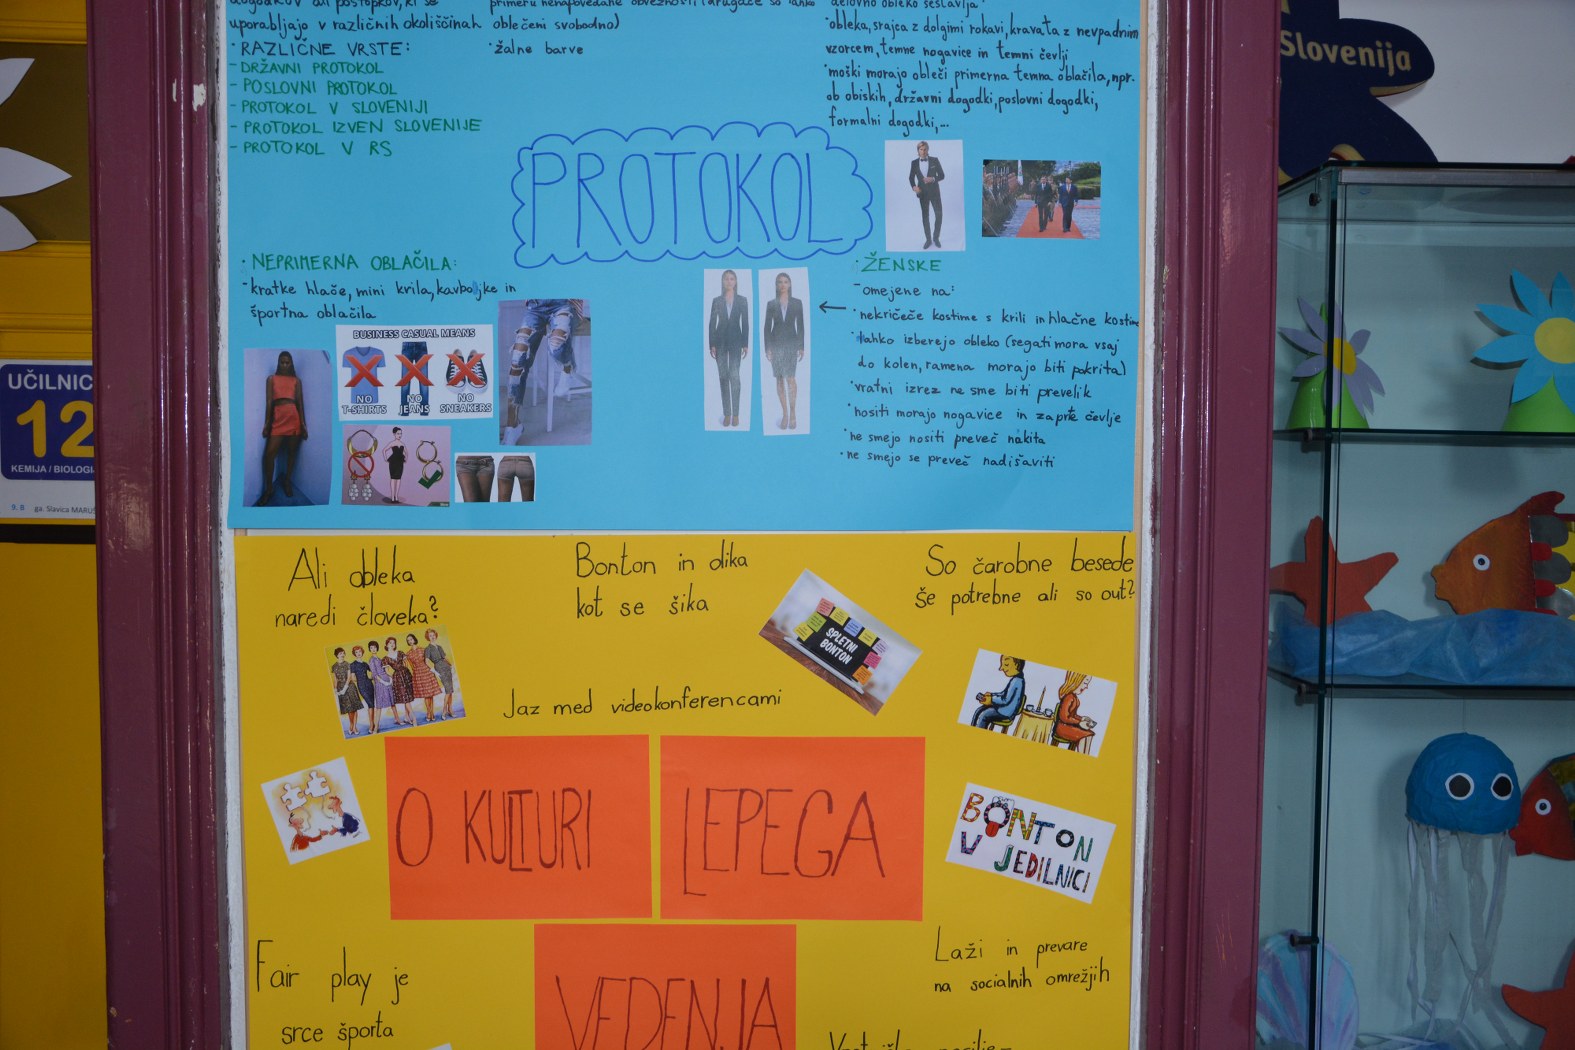 uporabljajo v različnih okoliščinah
· RAZLIČNE VRSTE:
- DRŽAVNI PROTOKOL
- POSLOVNI PROTOKOL
- PROTOKOL V SLOVENIJI
- PROTOKOL IZVEN SLOVENIJE
- PROTOKOL V RS
oblečeni svobodno)
· žalne barve
· obleka, srajca z dolgimi rokavi, kravata z nevpadnim
vzorcem, temne nogavice in temni čevlji
· moški morajo obleči primerna temna oblačila, npr.
ob obiskih, državni dogodki, poslovni dogodki,
formalni dogodki,...
PROTOKOL
· NEPRIMERNA OBLAČILA:
- kratke hlače, mini krila, kavbojke in
športna oblačila
BUSINESS CASUAL MEANS
NO T-SHIRTS
NO JEANS
NO SNEAKERS
· ŽENSKE
- omejene na:
· nekričeče kostime s krili in hlačne kostime
· lahko izberejo obleko (segati mora vsaj
do kolen, ramena morajo biti pokrita)
· vratni izrez ne sme biti prevelik
· nositi morajo nogavice in zaprte čevlje
· ne smejo nositi preveč nakita
· ne smejo se preveč nadišaviti
Slovenija
UČILNIC
12
KEMIJA / BIOLOGIJ
ga. Slavica MARUŠ
Ali obleka
naredi človeka?
Bonton in olika
kot se šika
So čarobne besede
še potrebne ali so out?
SPLETNI
BONTON
Jaz med videokonferencami
O KULTURI
LEPEGA
VEDENJA
BONTON
V JEDILNICI
Fair play je
srce športa
Laži in prevare
na socialnih omrežjih